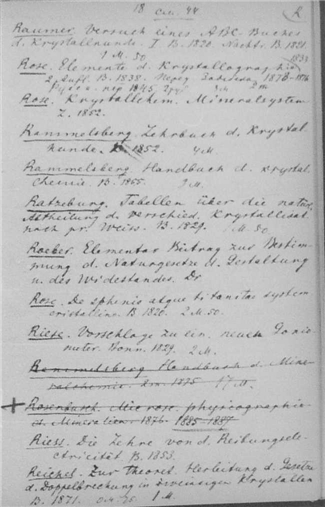 18 R
Raumer. Versuch eines ABC Buches
d. Krystallkunde. I B. 1820 Nachtr. B. 1821.
1 M. 50
Rose. Elemente d. Krystallographie
2 Aufl. B. 1838.
Rose. Krystallchem. Mineralsystem
L. 1852.
Rammelsberg. Lehrbuch d. Krystal
kunde. 1852. 4 M.
Rammelsberg Handbuch d. krystal.
Chemie. B. 1855. 3 M.
Ratzeburg. Tabellen über die natür.
Abtheilung d. verschied. Krystallisat
nach pr. Weiss. B. 1829. M. 50
Roeber. Elementar Beitrag zur Bestim-
mung d. Naturgesetze d. Gestaltung
u. des Widestandes. Dr.
Rose. De sphenis atque titanitae system.
cristallin. B. 1820. 2 M. 50
Riese. Vorschlage zu ein. neuen Gonio
meter. Bonn. 1829. 2 M.
Rammelsberg Handbuch d. Mine-
ralchemie. 1875 M.
+ Rosenbusch. Micros. physiographie
d. Mineralien 1876 1885-1887
Riess. Die Lehre von d. Reibungsele-
ctricität B. 1853.
Reichel. Zur Theoret. Herleitung d. Gesetze
d. Doppelbrechung in zweiaxigen Krystallen
B. 1871. 1 M.